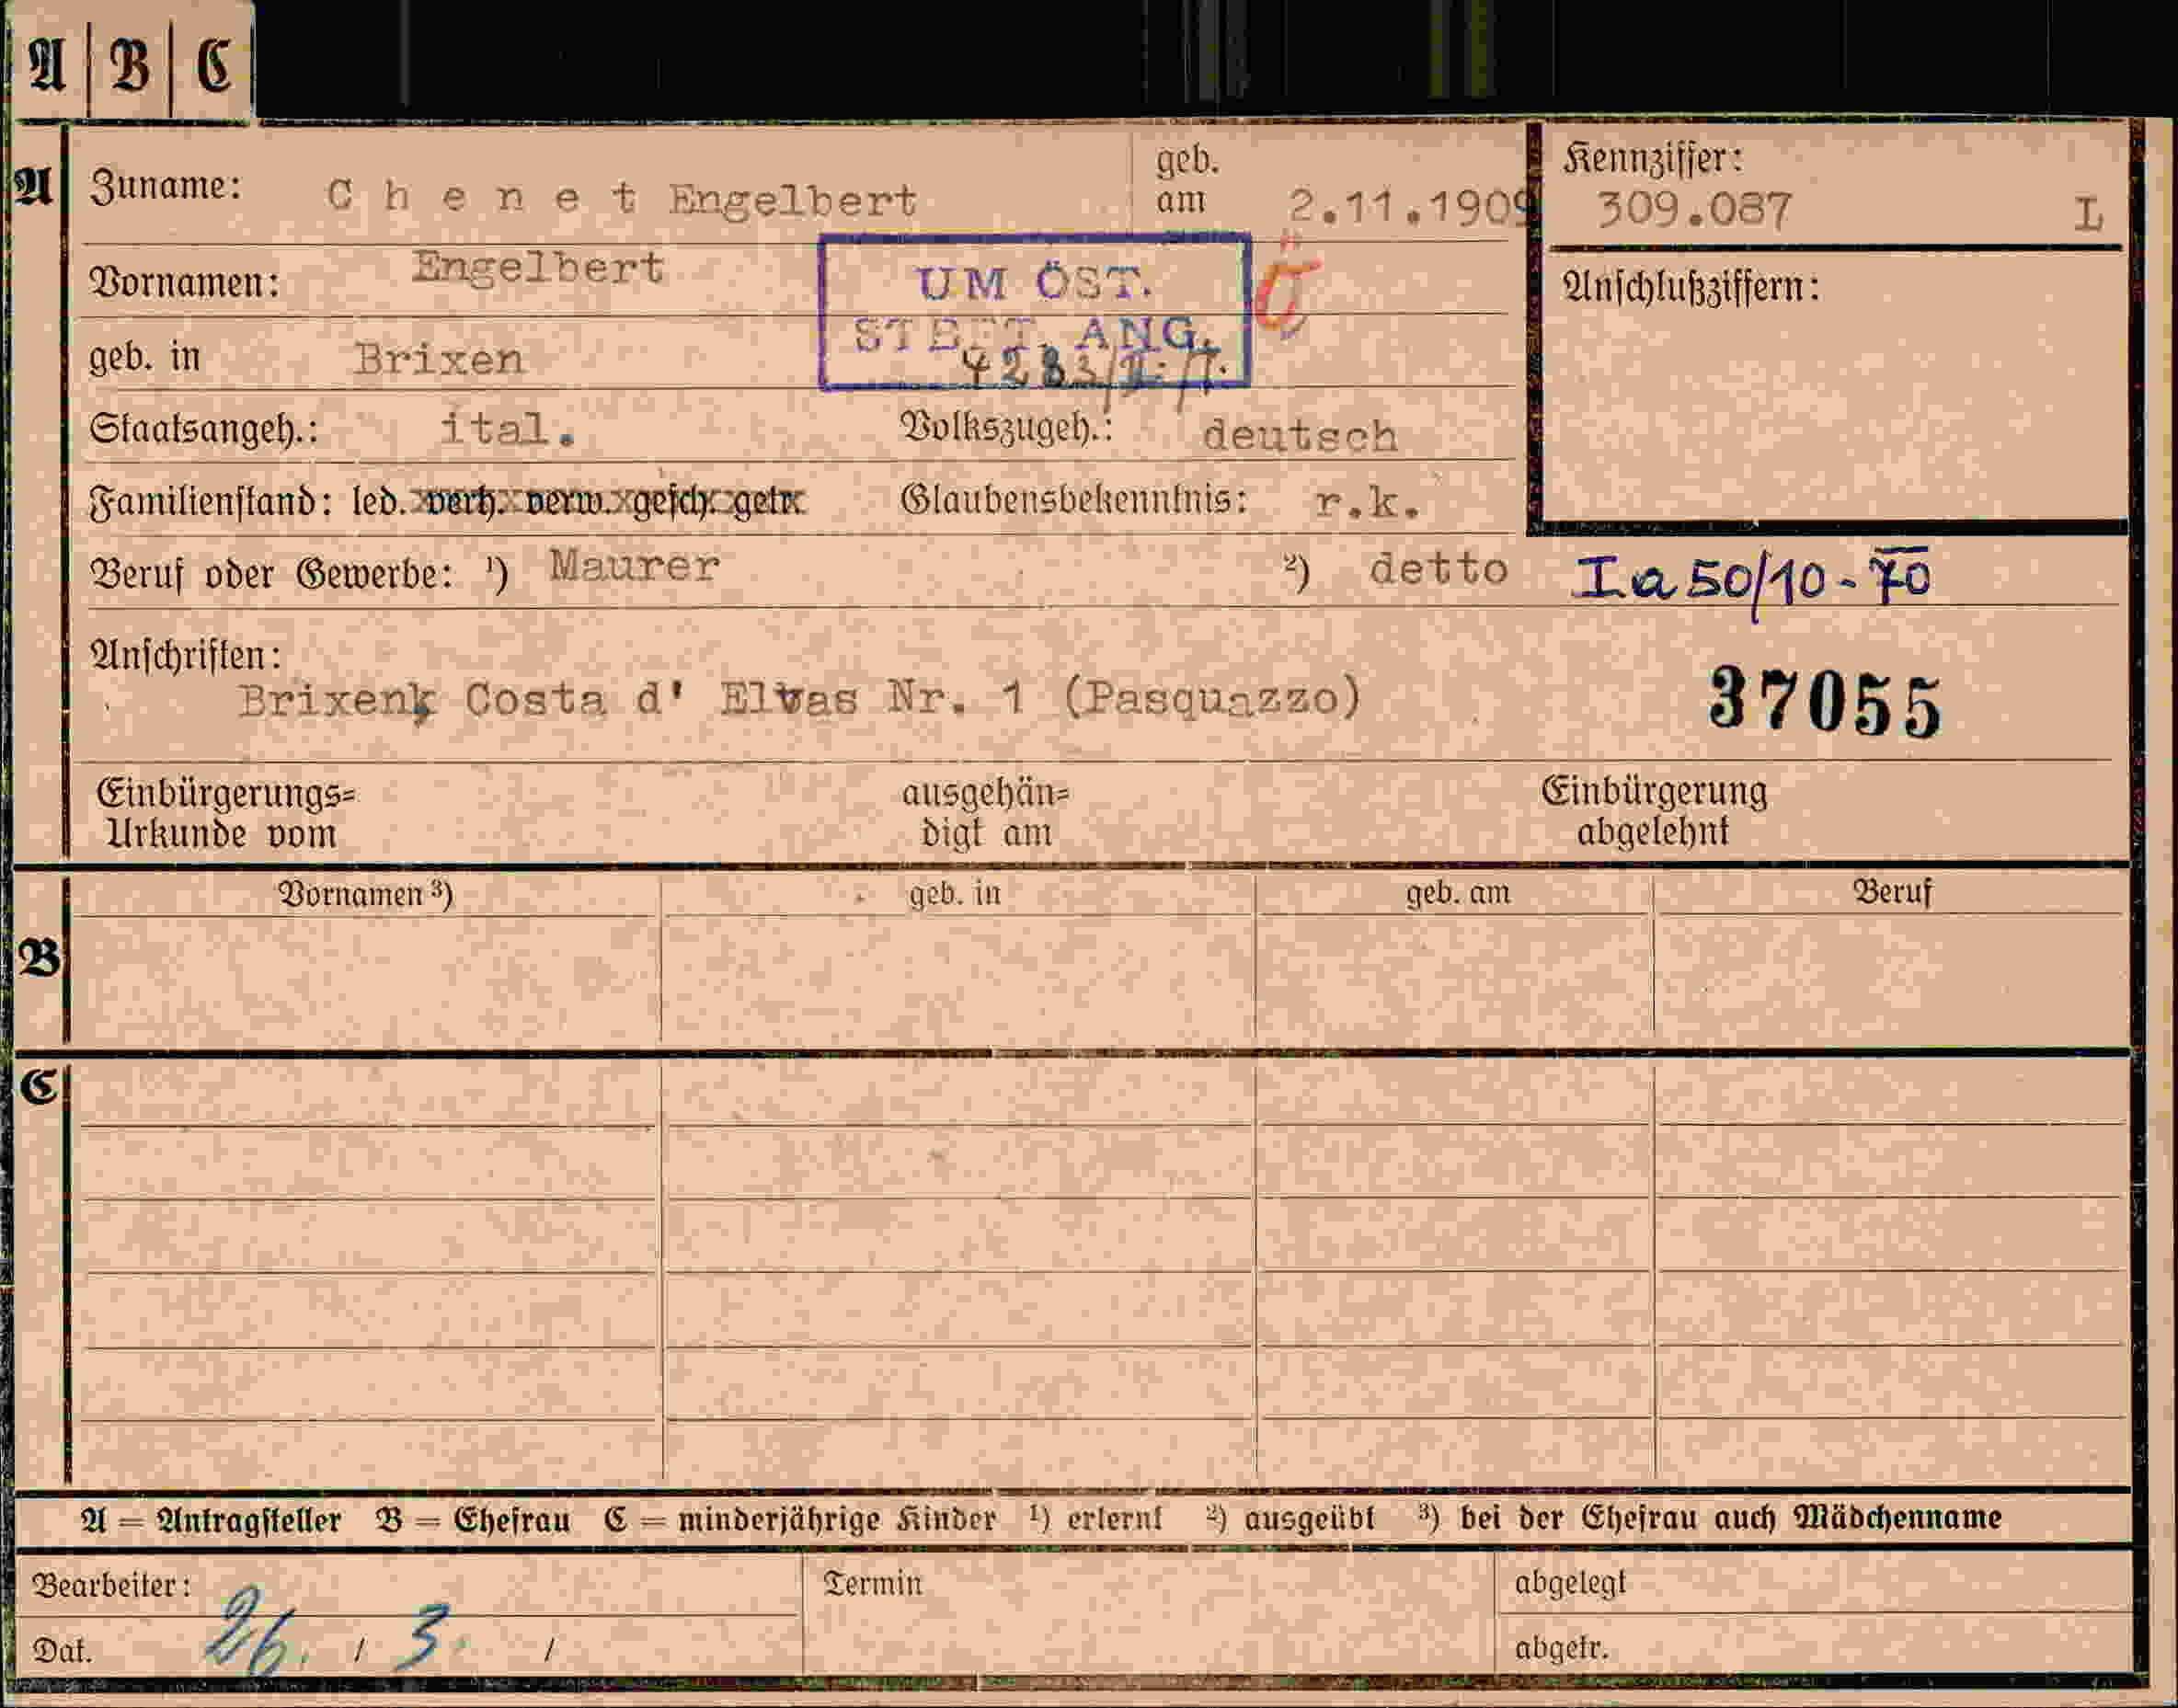 A | B | C
A Zuname: C h e n e t Engelbert geb. am 2.11.1909 Kennziffer: 309.087 L
Vornamen: Engelbert UM ÖST. Ö Anschlußziffern:
STBFT. ANG.
geb. in Brixen
Staatsangeh.: ital. Volkszugeh.: deutsch
Familienstand: led. verh. verw. gesch. getr. Glaubensbekenntnis: r.k.
Beruf oder Gewerbe: ¹) Maurer ²) detto Ia 50/10-70
Anschriften:
Brixen, Costa d' Elvas Nr. 1 (Pasquazzo) 37055
Einbürgerungs= ausgehän= Einbürgerung
Urkunde vom digt am abgelehnt
Vornamen ³) geb. in geb. am Beruf
B
C
A = Antragsteller B = Ehefrau C = minderjährige Kinder ¹) erlernt ²) ausgeübt ³) bei der Ehefrau auch Mädchenname
Bearbeiter: Termin abgelegt
Dat. 26. / 3. / abgetr.